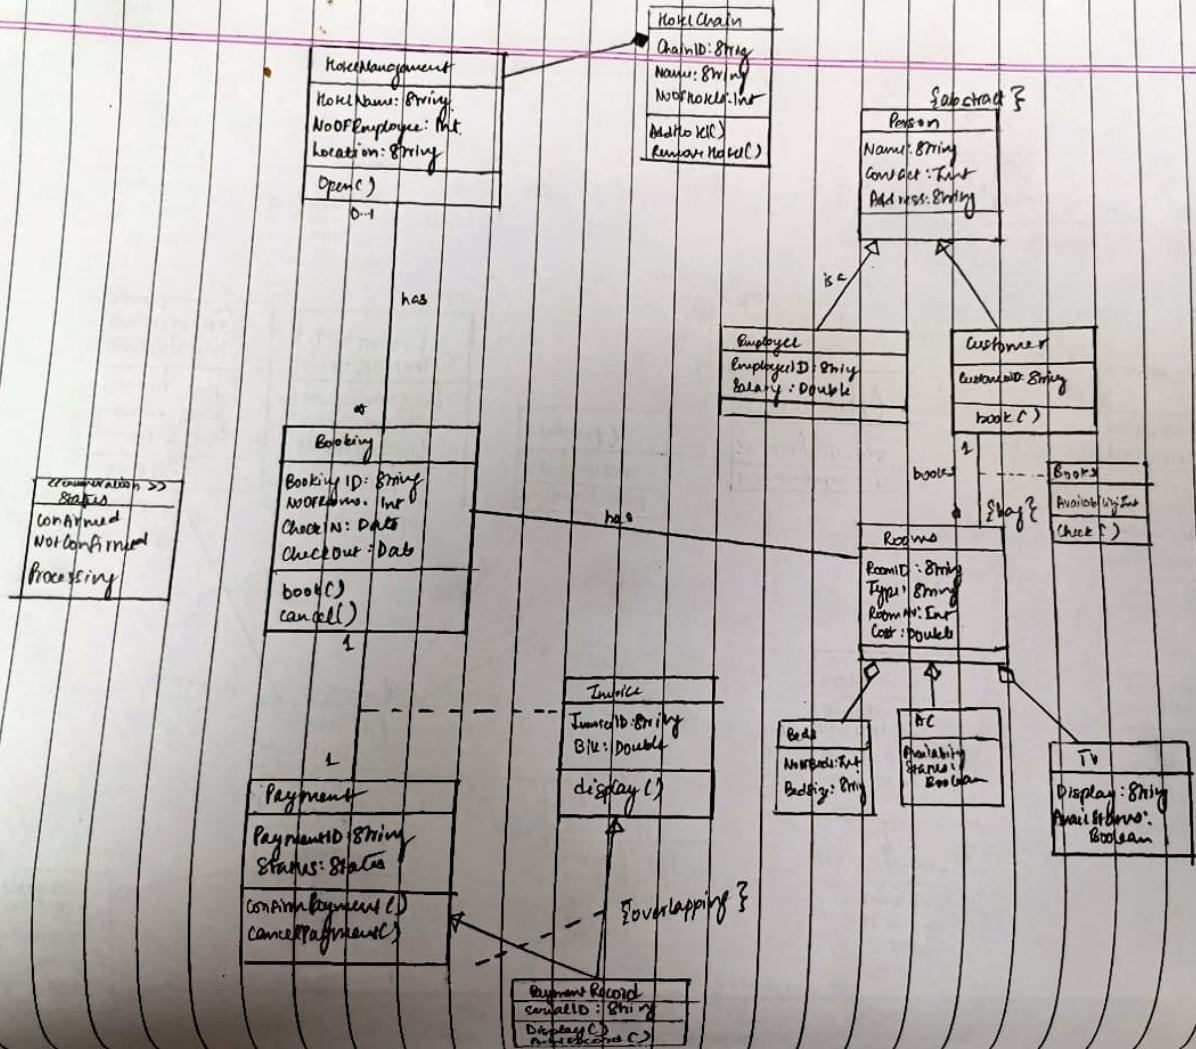 HotelChain
ChainID: String
Name: String
NoOfHotels: Int
AddHotel()
RemoveHotel()
HotelManagement
HotelName: String
NoOfEmployee: Int
Location: String
Open()
0..1
has
*
{abstract}
Person
Name: String
Contact: Int
Address: String
is a
Employee
EmployeeID: String
Salary: Double
Customer
CustomerID: String
book()
1
books
*
{bag}
Books
Availability: Int
Check()
<<enumeration>>
Status
Confirmed
NotConfirmed
Processing
Booking
Booking ID: String
NoOfRooms: Int
CheckIN: Date
CheckOut: Date
book()
cancel()
1
has
Rooms
RoomID: String
Type: String
RoomNo: Int
Cost: Double
Beds
NoOfBeds: Int
BedSize: String
AC
Availability
Status:
Boolean
TV
Display: String
AvailStatus:
Boolean
Invoice
InvoiceID: String
Bill: Double
display()
1
Payment
PaymentID: String
Status: Status
ConfirmPayment()
CancelPayment()
{overlapping}
Payment Record
SerialID: String
Display()